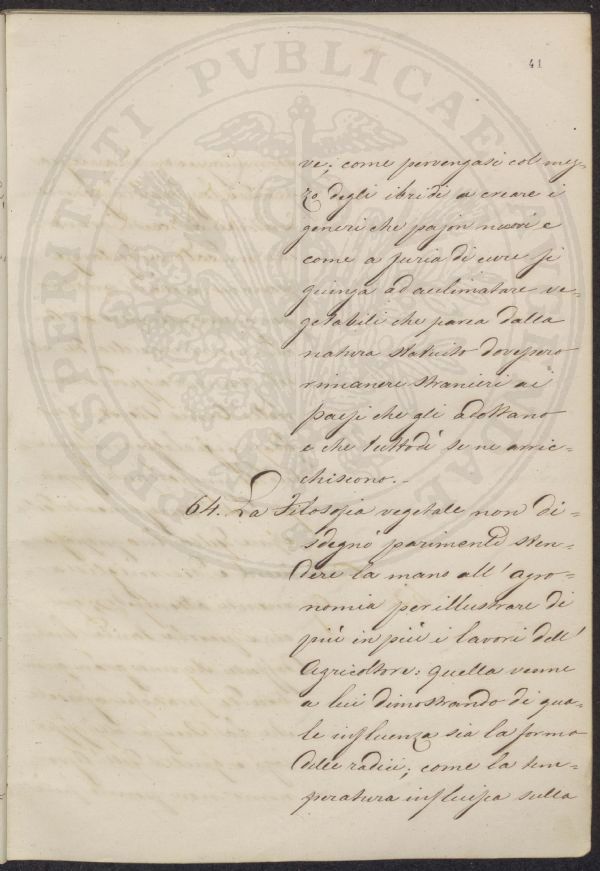 41
ve; come pervengasi col mez=
zo degli ibridi a creare i
generi che pajon nuovi e
come a furia di cure si
giunga ad acclimatare ve=
getabili che parea dalla
natura statuito dovessero
rimanere stranieri ai
paesi che gli adottano
e che tuttodì se ne arric=
chiscono. -
64. La Filosofia vegetale non di=
sdegnò parimenti sten=
dere la mano all' agro=
nomia per illustrare di
più in più i lavori dell'
Agricoltore: quella venne
a lui dimostrando di qua=
le influenza sia la forma
delle radici; come la tem=
peratura influisca sulla
PROSPERITATI PVBLICAE